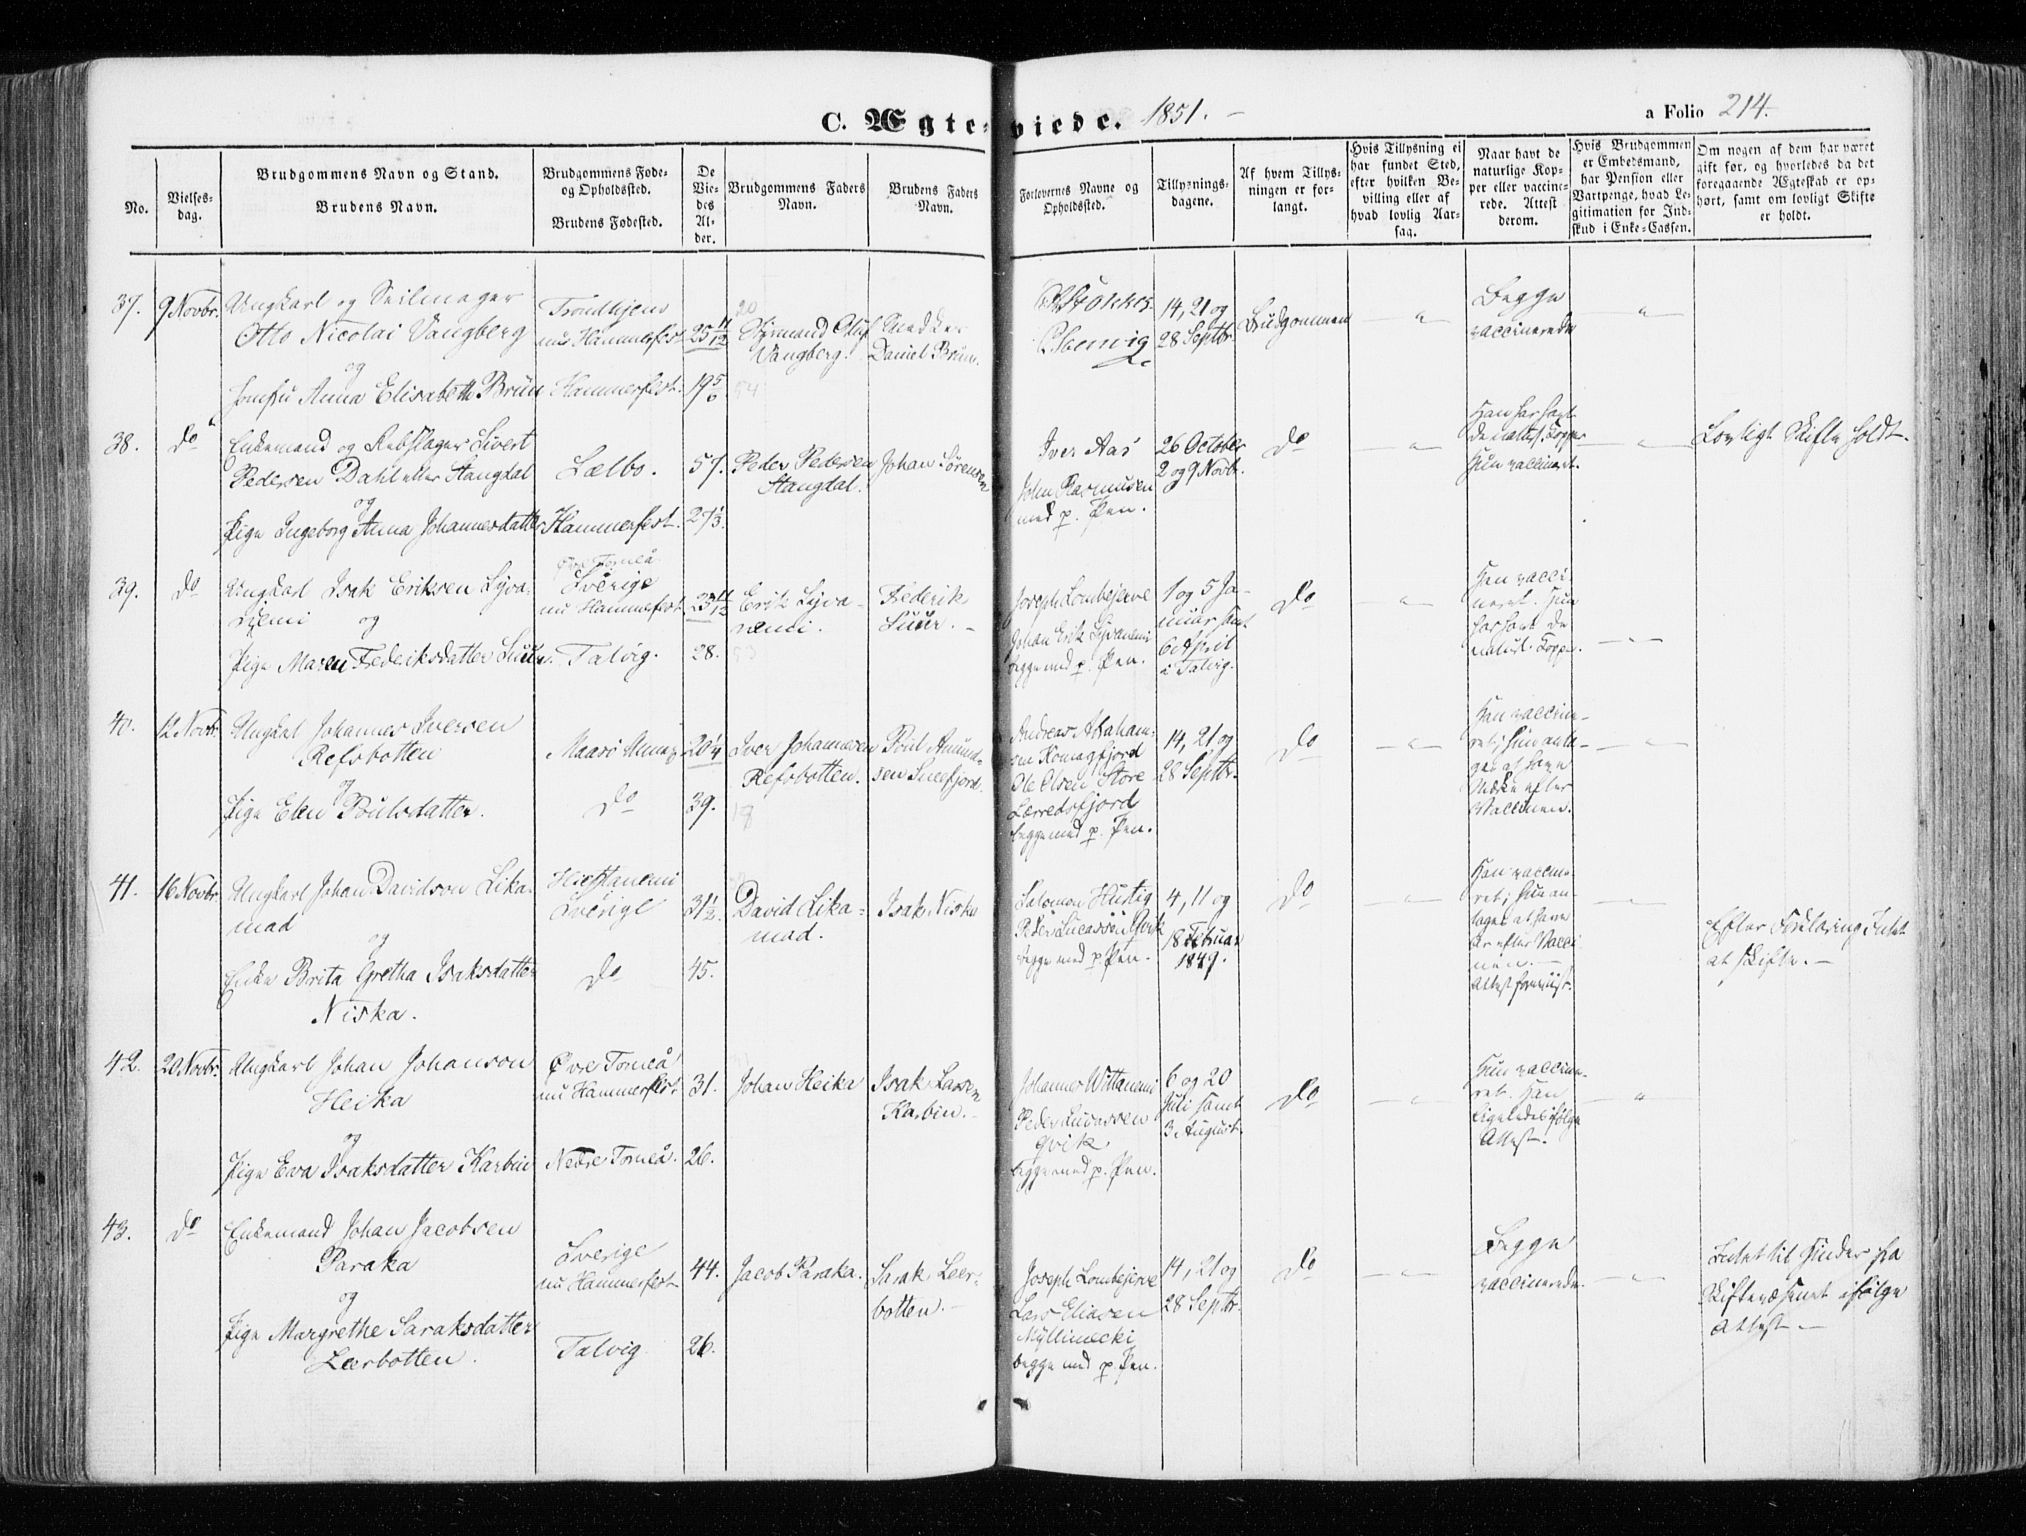 C. Ægte-viede. 1851. -
a Folio 214.
No.
Vielses-
dag.
Brudgommens Navn og Stand.
Brudens Navn.
Brudgommens Føde-
og Opholdssted.
Brudens Fødested.
De
Vie-
des
Al-
der.
Brudgommens Faders
Navn.
Brudens Faders
Navn.
Forlovernes Navne og
Opholdssted.
Tillysnings-
dagene.
Af hvem Tillys-
ningen er for-
langt.
Hvis Tillysning ei
har fundet Sted,
efter hvilken Be-
villing eller af
hvad lovlig Aar-
sag.
Naar havt de
naturlige Kop-
per eller vaccine-
rede. Attest
derom.
Hvis Brudgommen
er Embedsmand,
har Pension eller
Vartpenge, hvad Le-
gitimation for Ind-
skud i Enke-Cassen.
Om nogen af dem har været
gift før, og hvorledes da det
foregaaende Ægteskab er op-
hørt, samt om lovligt Skifte
er holdt.
37.
9 Novbr.
Ungkarl og Seilmager
Otto Nicolai Vangberg
og
Jomfru Anna Elisabeth Brun
Trondhjem
nu Hammerfest
Hammerfest.
25 11/12
19 5/6
Styrmand Oluf
Vangberg.
Snedker
Daniel Brun.
14, 21 og
28 Septbr.
Brudgommen
Begge
vaccinerede
38.
do
Enkemand og Rebslager Sivert
Pedersen Dahl eller Stangdal
og
Pige Ingeborg Anna Johannesdatter
Hammerfest.
57.
27 1/3
Peder Pedersen
Stangdal.
Johan Sørensen
Iver Aas
John Rasmusen
med p. Pen.
26 October
2 og 9 Novb.
do
Han har havt
de naturl. Kopper
Hun vaccineret.
Lovligt Skifte holdt.
39.
do
Ungkarl Isak Eriksen Lyva-
niemi og
Pige Maren Frederiksdatter
Øvre Torneå
Sverige
nu Hammerfest
Talvig.
23 11/12
28.
Erik Lyva-
niemi.
Frederik
Joseph Lombejerve
Johan Erik Lyvaniemi
begge med p. Pen.
1 og 5 Ja-
nuar samt
6 April
i Talvig.
do
Han vacci-
neret. Hun
har havt de
naturl. Kopper.
40.
12 Novbr.
Ungkarl Johannes Iversen
Refsbotten
og
Pige Elen Poulsdatter.
Maasø Annex
do
20 1/4
39.
Iver Johannesen
Refsbotten.
Poul Amund-
sen Sneefjord.
Andreas Abraham-
sen Komagfjord
Ole Olsen Store
Lerredsfjord
begge med p. Pen.
14, 21 og
28 Septbr.
do
Han vaccine-
ret; Hun anta-
ges at have
Mærke efter
Vaccinen.
41.
16 Novbr.
Ungkarl Johan Davidson Lika-
mad
og
Enke Brita Gretha Isaksdatter
Niska.
Hietaniemi
Sverige
do
31 1/2
45.
David Lika-
mad.
Isak Niska
Salomon Hurtig
Peder Lucassen Qvik
begge med p. Pen.
4, 11 og
18 Februar
1849.
do
Han vaccine-
ret; Hun an-
tages at have
Ar efter Vacci-
nen. -
Attest foreviist.
Efter Forklaring Intet
at skifte. -
42.
20 Novbr.
Ungkarl Johan Johanson
Heika
og
Pige Eva Isaksdatter Karbin
Øvre Torneå
nu Hammerfest.
Nedre Torneå.
31.
26.
Johan Heika
Isak Larsen
Karbin. -
Johannes Wittaniemi
Peder Lucassen
Qvik.
begge med p. Pen.
6 og 20
Juli samt
3 August.
do
Hun vaccine-
ret. Han
ligeledes ifølge
Attest.
43.
do
Enkemand Johan Jacobsen
Paraka
og
Pige Margrethe Saraksdatter
Leerbotten.
Sverige
nu Hammerfest
Talvig.
44.
26.
Jacob Paraka.
Sarak Leer-
botten. -
Joseph Lombejerve
Lars Eliasen
Myllimecki
begge med p. Pen.
14, 21 og
28 Septbr.
do
Begge
vaccinerede.
Intet til Hinder fra
Skiftevæsenet ifølge
Attest. -